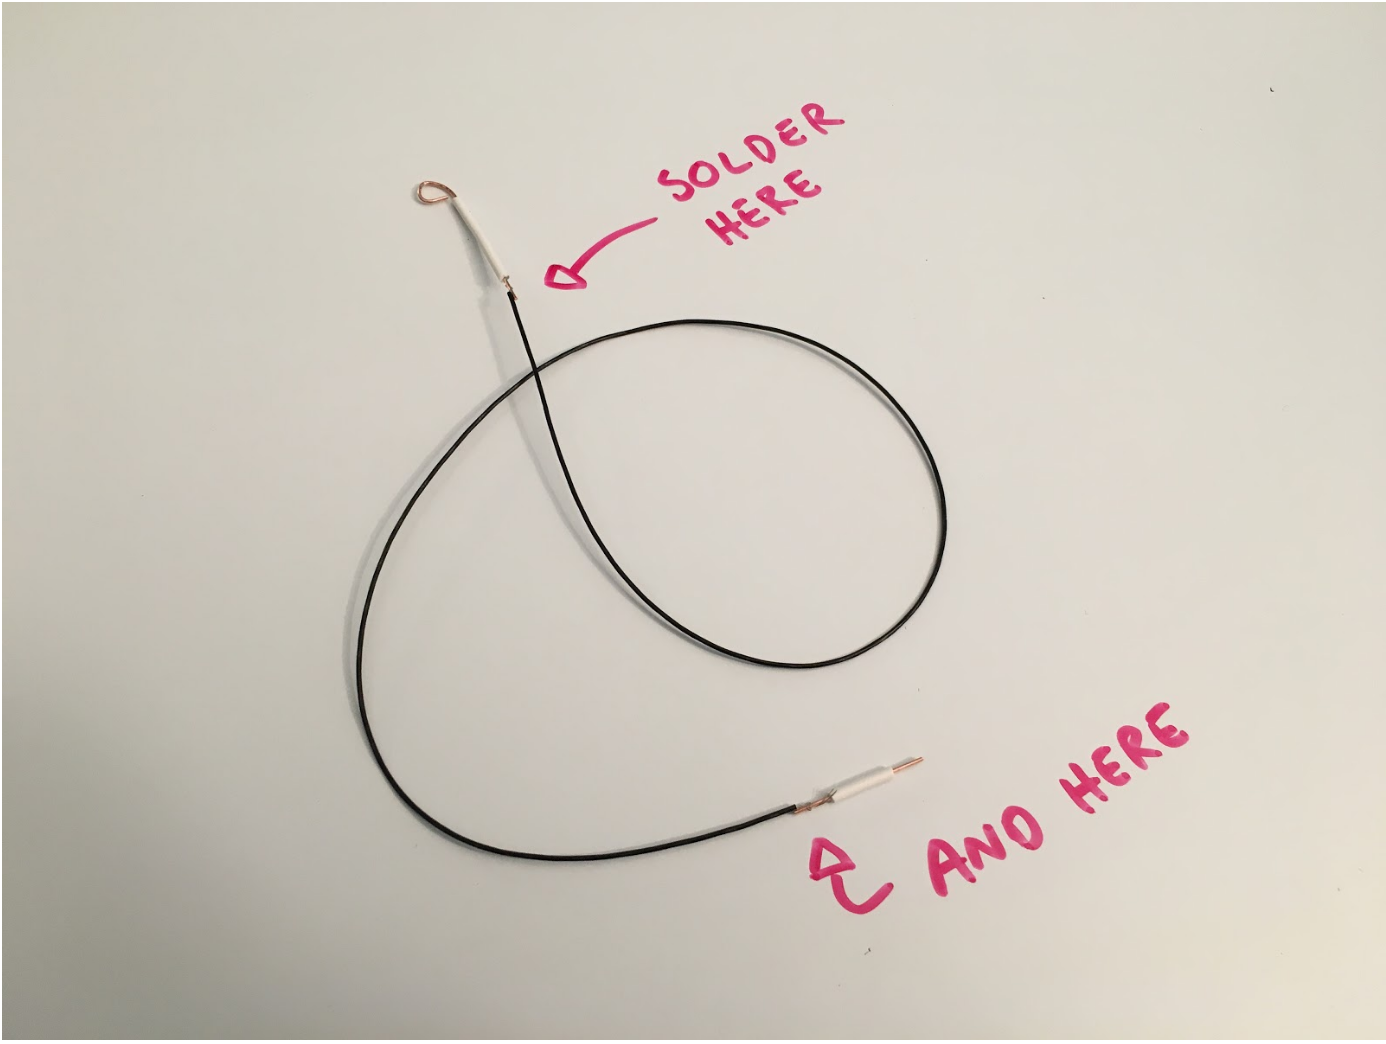 SOLDER
HERE
AND HERE